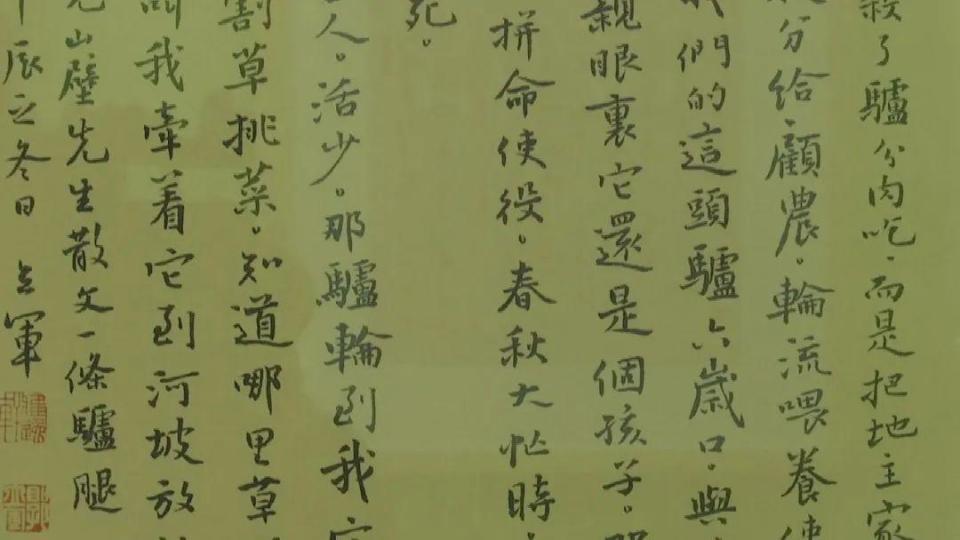 殺了驢分肉吃，而是把地主家
分給顧農。輪流喂養使
們的這頭驢六歲口，與
親眼裏它還是個孩子。那
拼命使役。春秋大忙時，
死。
人。活少。那驢輪到我家
割草挑菜。知道哪里草
叫我牽着它到河坡放
山壁先生散文一條驢腿
辰之冬日 立軍